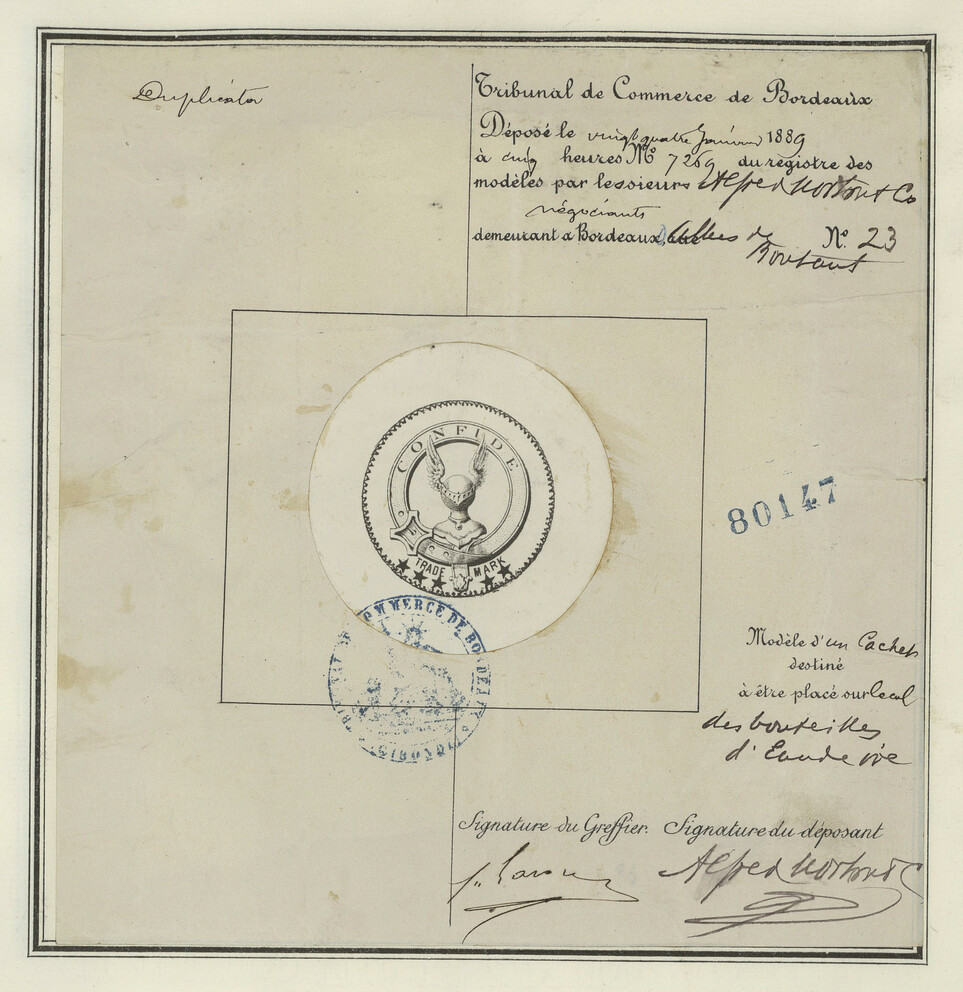 Duplicata
Tribunal de Commerce de Bordeaux
Déposé le vingt quatre Janvier 1889
à cinq heures Nº 7269 du registre des
modèles par les sieurs Alfred Morton & Co
négociants
demeurant à Bordeaux Allées de Nº 23
Boutaut
CONFIDE
TRADE MARK
80147
COMMERCE DE BORDEAUX
Modèle d'un Cachet
destiné
à être placé sur le col
des bouteilles
d'Eau de vie
Signature du Greffier. Signature du déposant
Alfred Morton & C